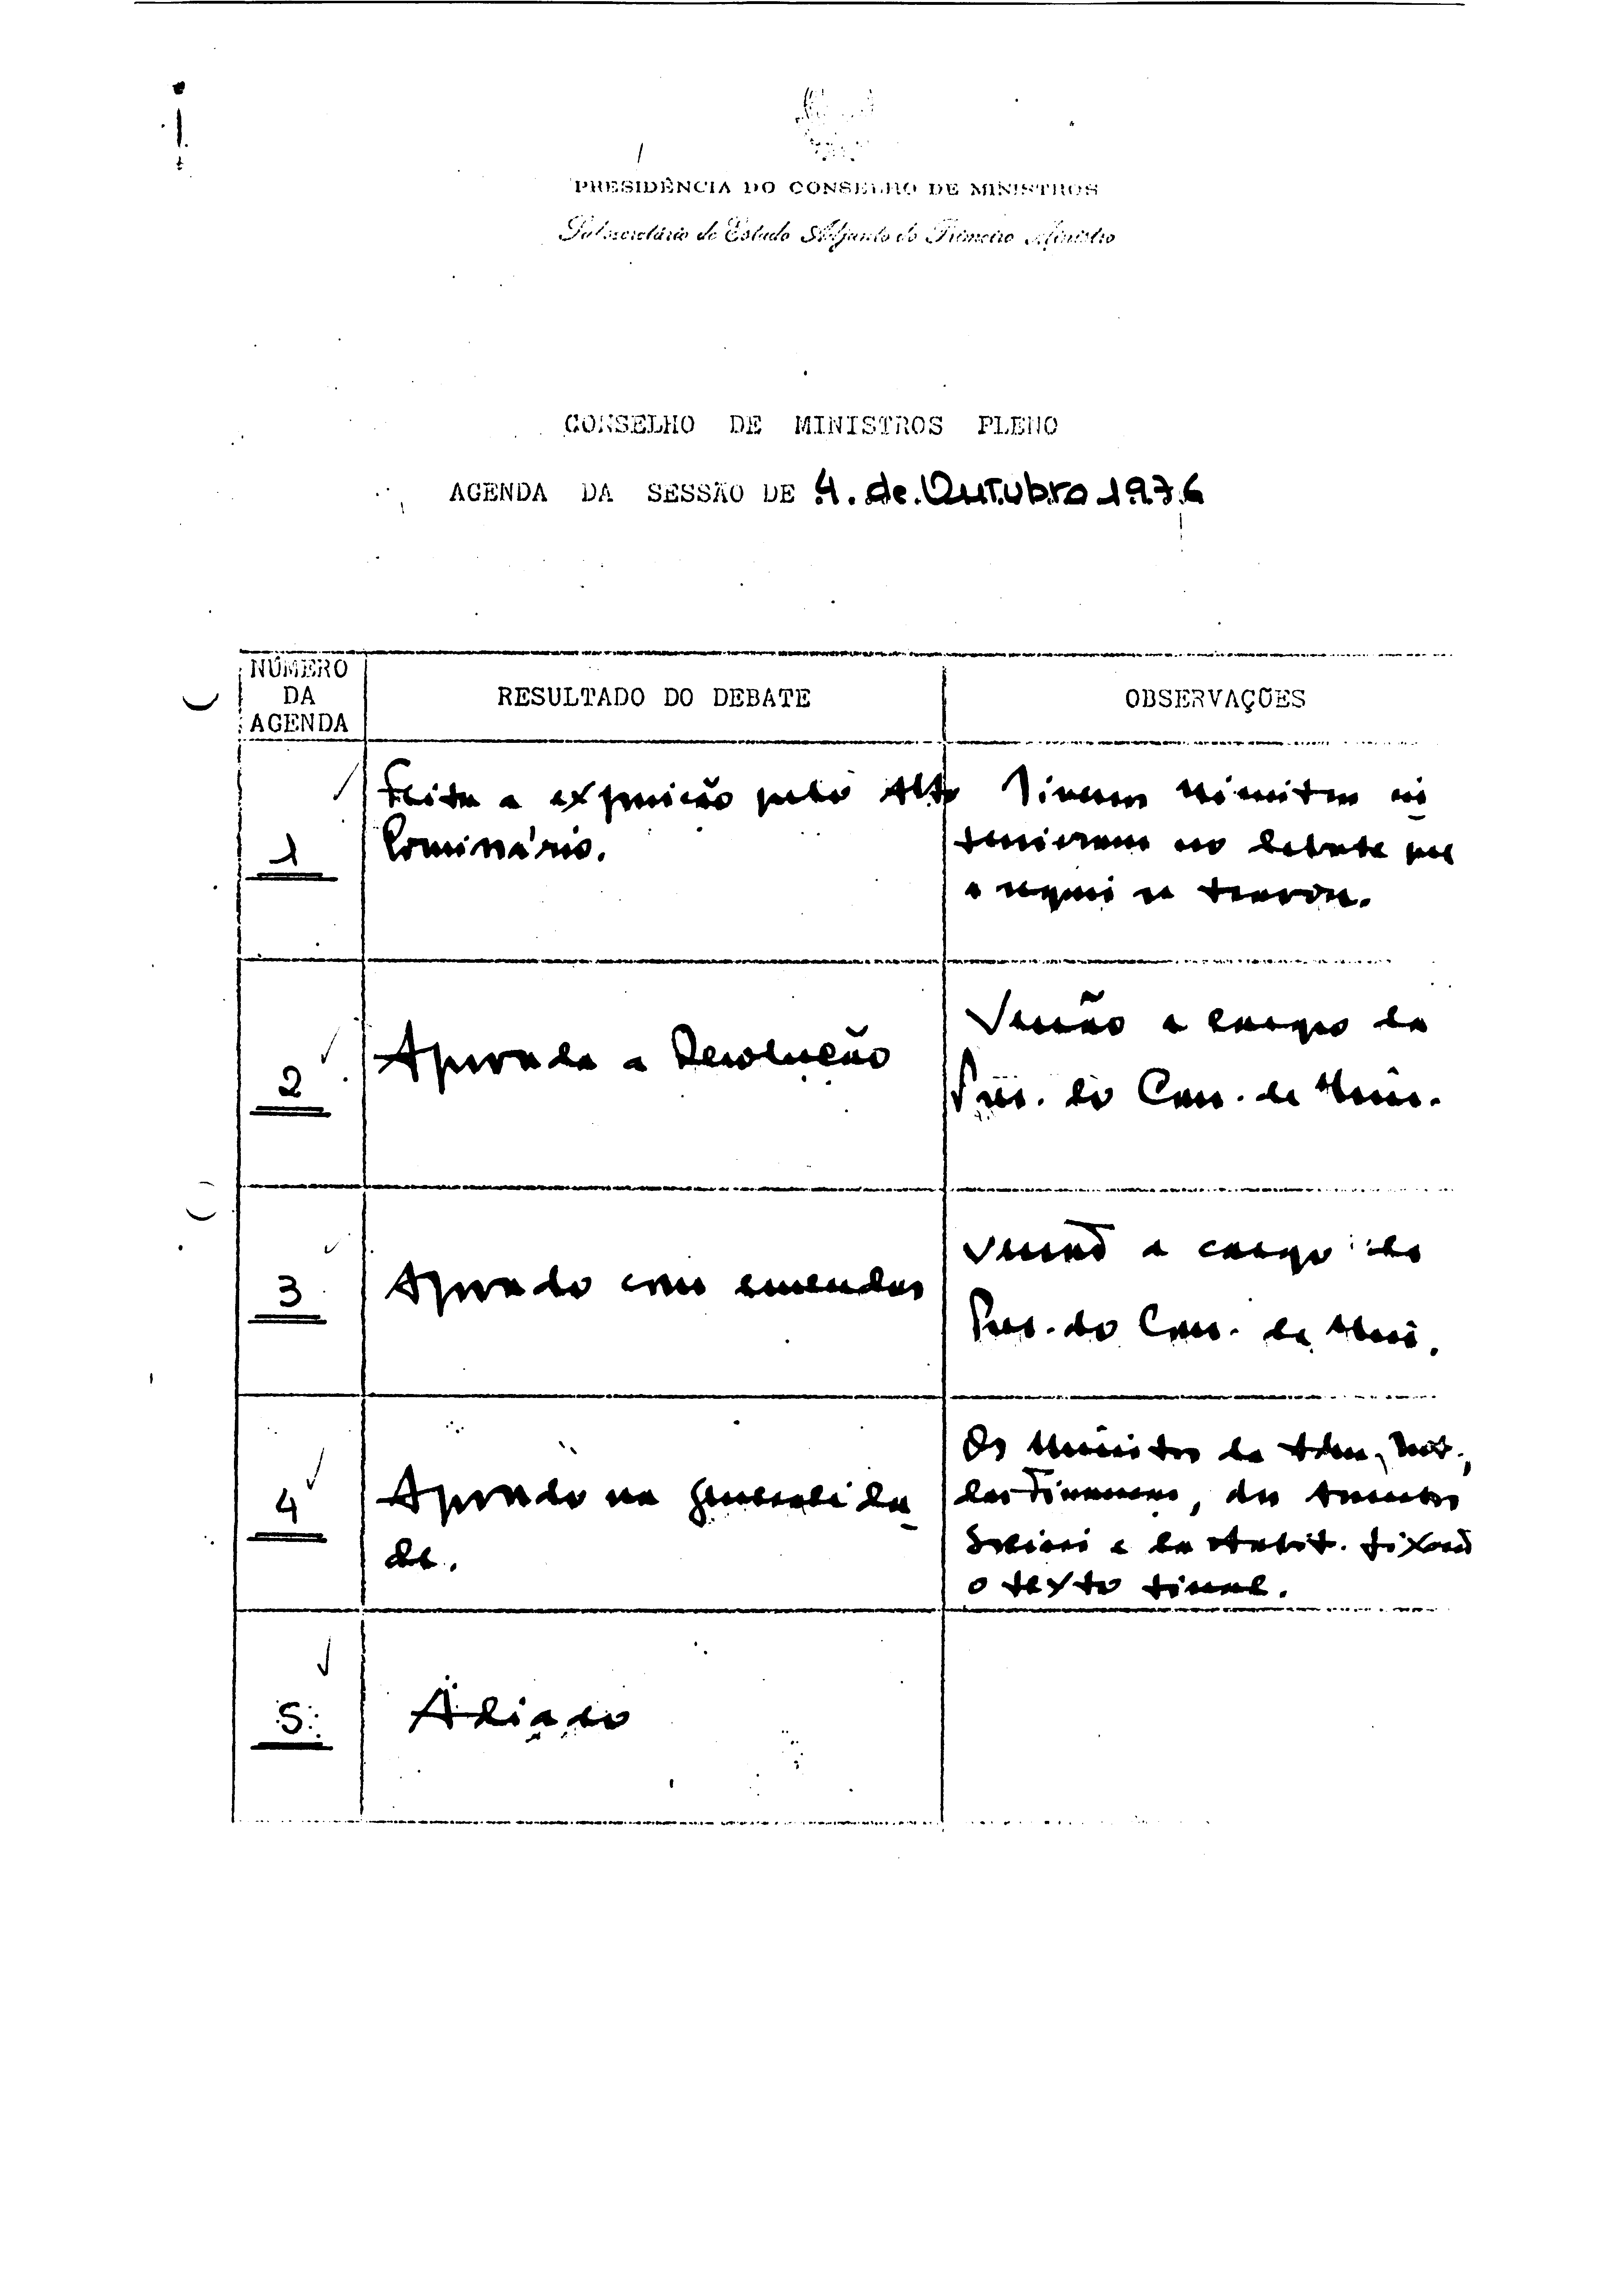 PRESIDÊNCIA DO CONSELHO DE MINISTROS
Subsecretário de Estado Adjunto do Primeiro Ministro
CONSELHO DE MINISTROS PLENO
AGENDA DA SESSÃO DE 4. de. Outubro 1976
NÚMERO
DA
AGENDA
RESULTADO DO DEBATE
OBSERVAÇÕES
1
Feita a exposição pelo Alto
Comissário.
Diversos Ministros in
tervieram no debate que
a seguir se travou.
2
Aprovada a Resolução
Versão a cargo da
Pres. do Con. de Min.
3
Aprovado com emendas
Versão a cargo da
Pres. do Con. de Min.
4
Aprovado na generalida_
de.
Os Ministros da Adm. Int.,
das Finanças, dos Assuntos
Sociais e da Habit. fixarão
o texto final.
5
Adiado